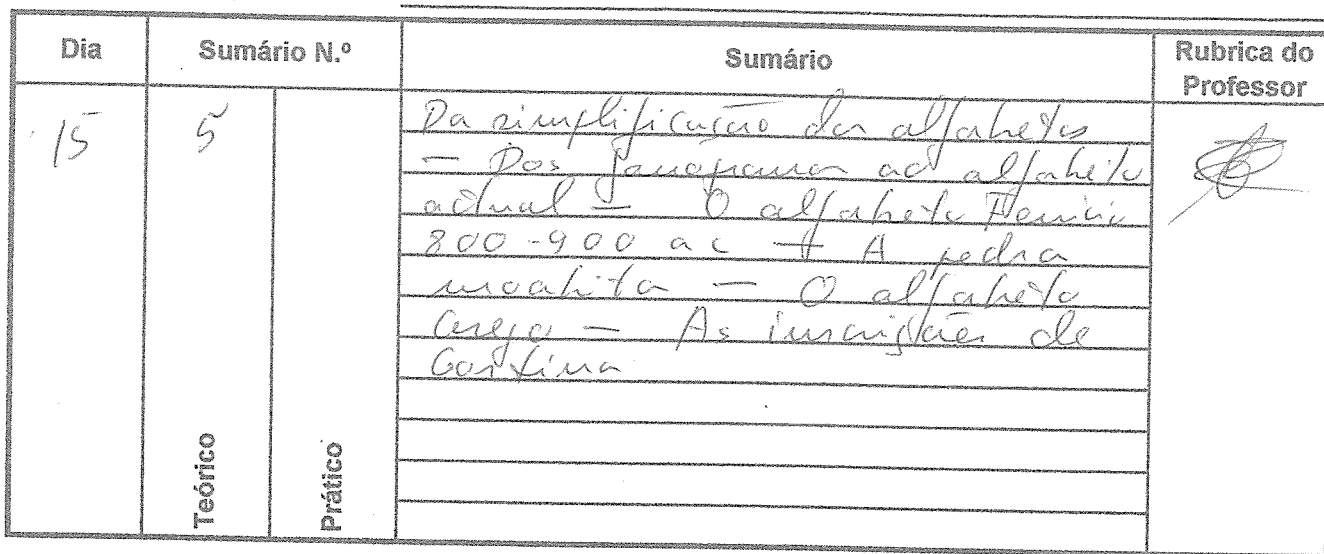 Dia
Sumário N.º
Sumário
Rubrica do
Professor
15
5
Teórico
Prático
Da simplificação dos alfabetos
— Dos ao alfabeto
actual — O alfabeto Fenício
800-900 a c — A pedra
moabita — O alfabeto
Grego — As inscrições de
Gortina